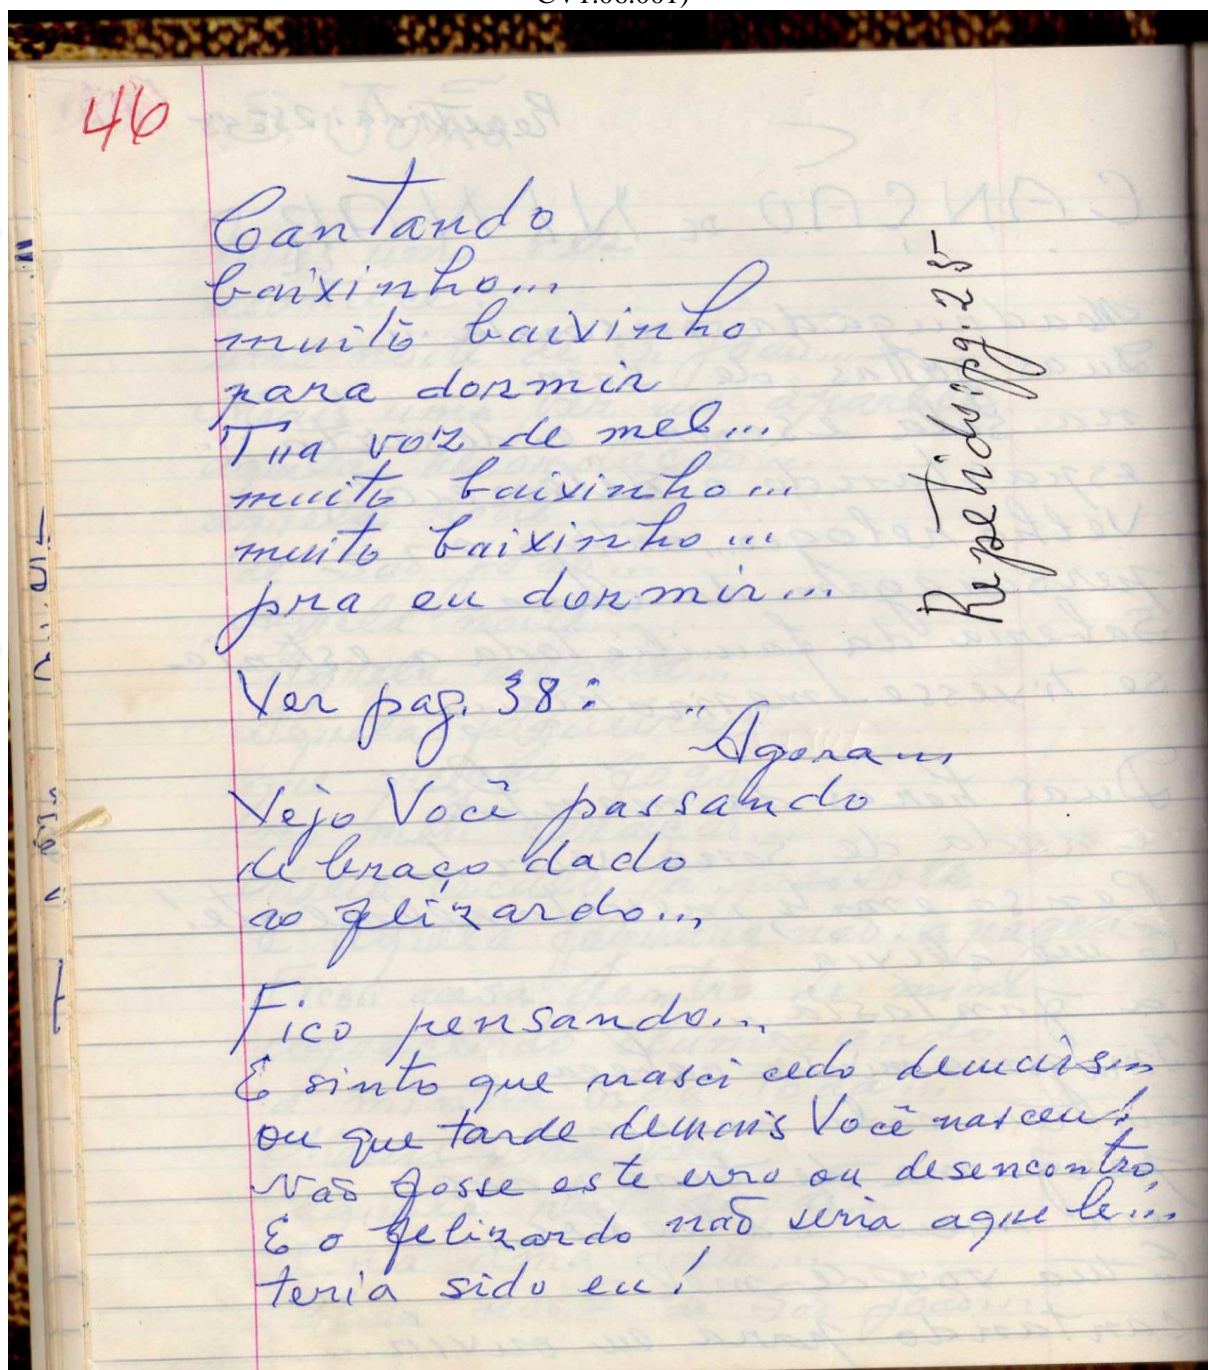 CV1.06.001)
46
Cantando
baixinho...
muito baixinho
para dormir
Tua voz de mel...
muito baixinho...
muito baixinho...
pra eu dormir...
Repetido: pg. 25
Ver pag. 38:
"Agora...
Vejo Você passando
de braço dado
ao felizardo...
Fico pensando...
E sinto que nasci cedo demais...
ou que tarde demais Você nasceu!
Não fosse este erro ou desencontro,
E o felizardo não seria aquele...
teria sido eu!